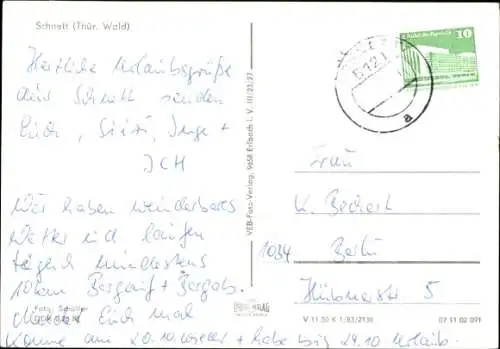 Schnett (Thür. Wald)
Herzliche Urlaubsgrüße
aus Schnett senden
Euch, Sissi, Inge +
ICH
Wir haben wunderbares
Wetter und laufen
täglich mindestens
10 km Bergauf + Bergab.
Euch mal
Komme am 20.10. wieder + habe bis 24.10. Urlaub.
Foto: Schäfer
VEB Foto-Verlag, 9658 Erlbach i. V. III/23/27
10
a
Frau
K. Bechert
1034 Berlin
Hübnerstr. 5
V 11 50 K 1/83/2130
07 11 02 091